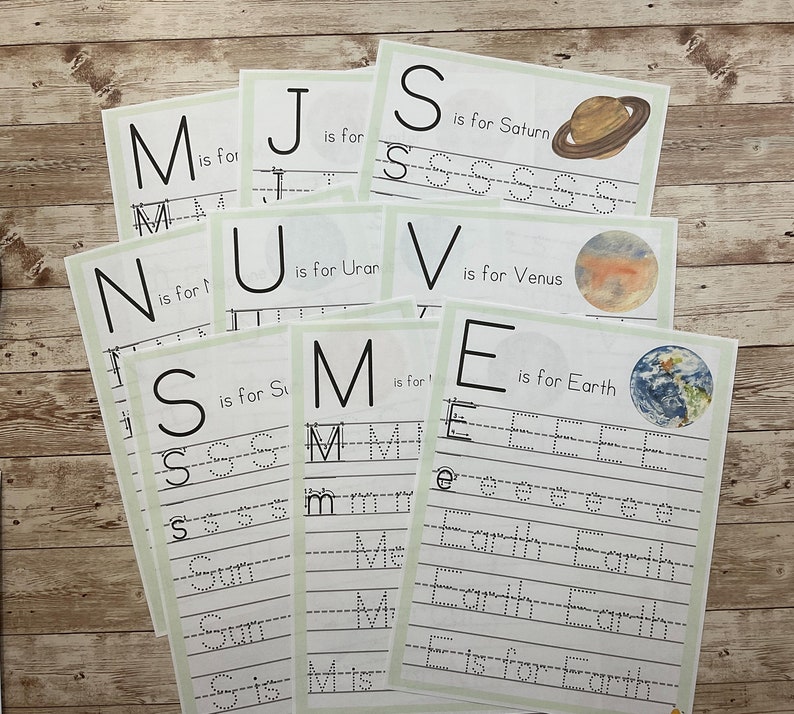 M is for
M M
J is for
J J
S is for Saturn
S S S S S S
N is for
N
U is for Uran
U
V is for Venus
V
S is for Su
S S S
s s s s s
Sun
Sun
S is
M is for
M M M
m m m
Ma
M
M is
E is for Earth
E E E E E
e e e e e e e
Earth Earth
Earth Earth
E is for Earth